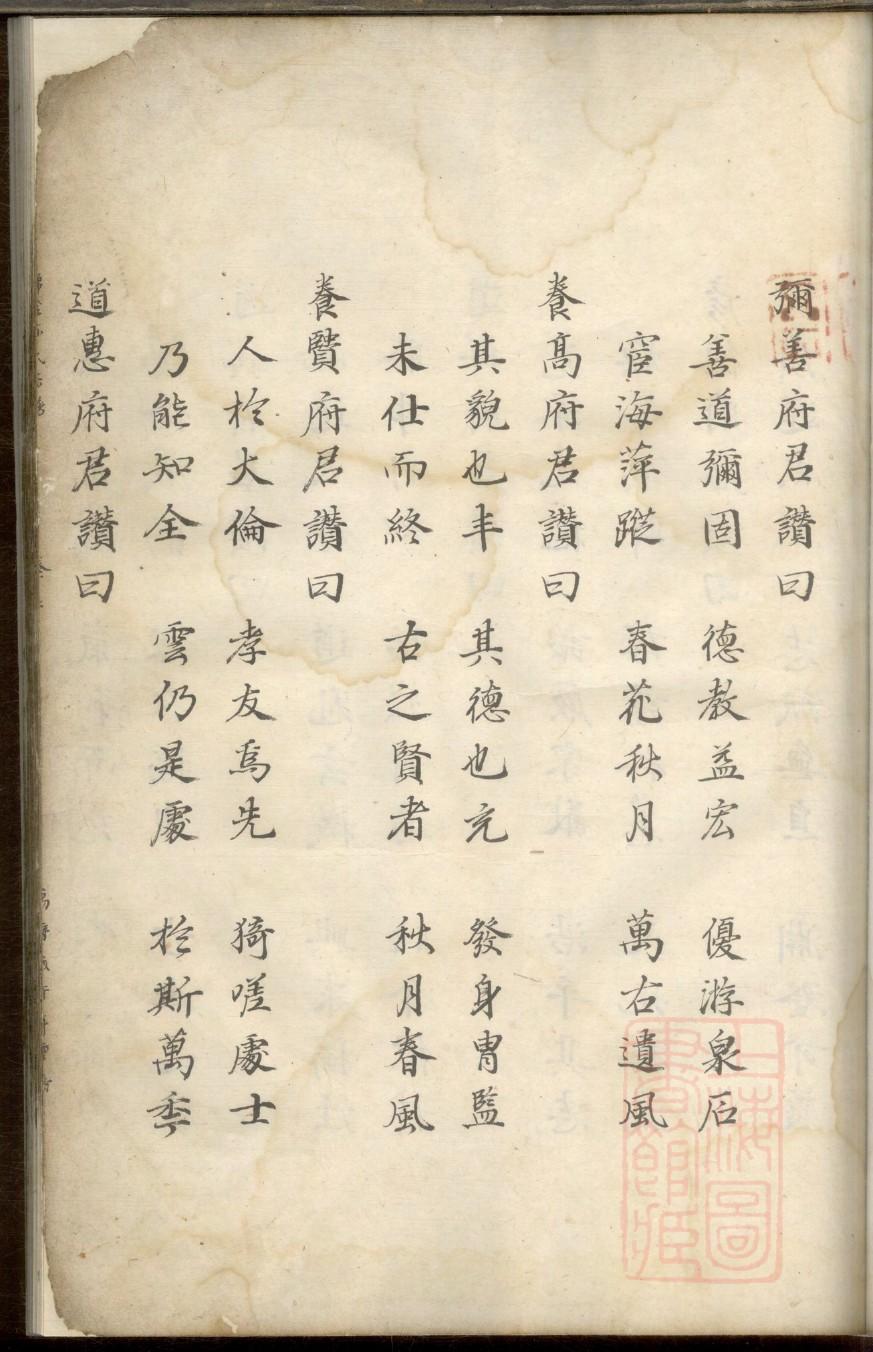 彌善府君讃曰
善道彌固　德教益宏　優游泉石
宦海萍蹤　春花秋月　萬古遺風
養高府君讃曰
其貌也丰　其德也充　發身胄監
未仕而終　古之賢者　秋月春風
養賢府君讃曰
人於大倫　孝友爲先　猗嗟處士
乃能知全　雲仍是處　於斯萬季
道惠府君讃曰
上海圖書館藏